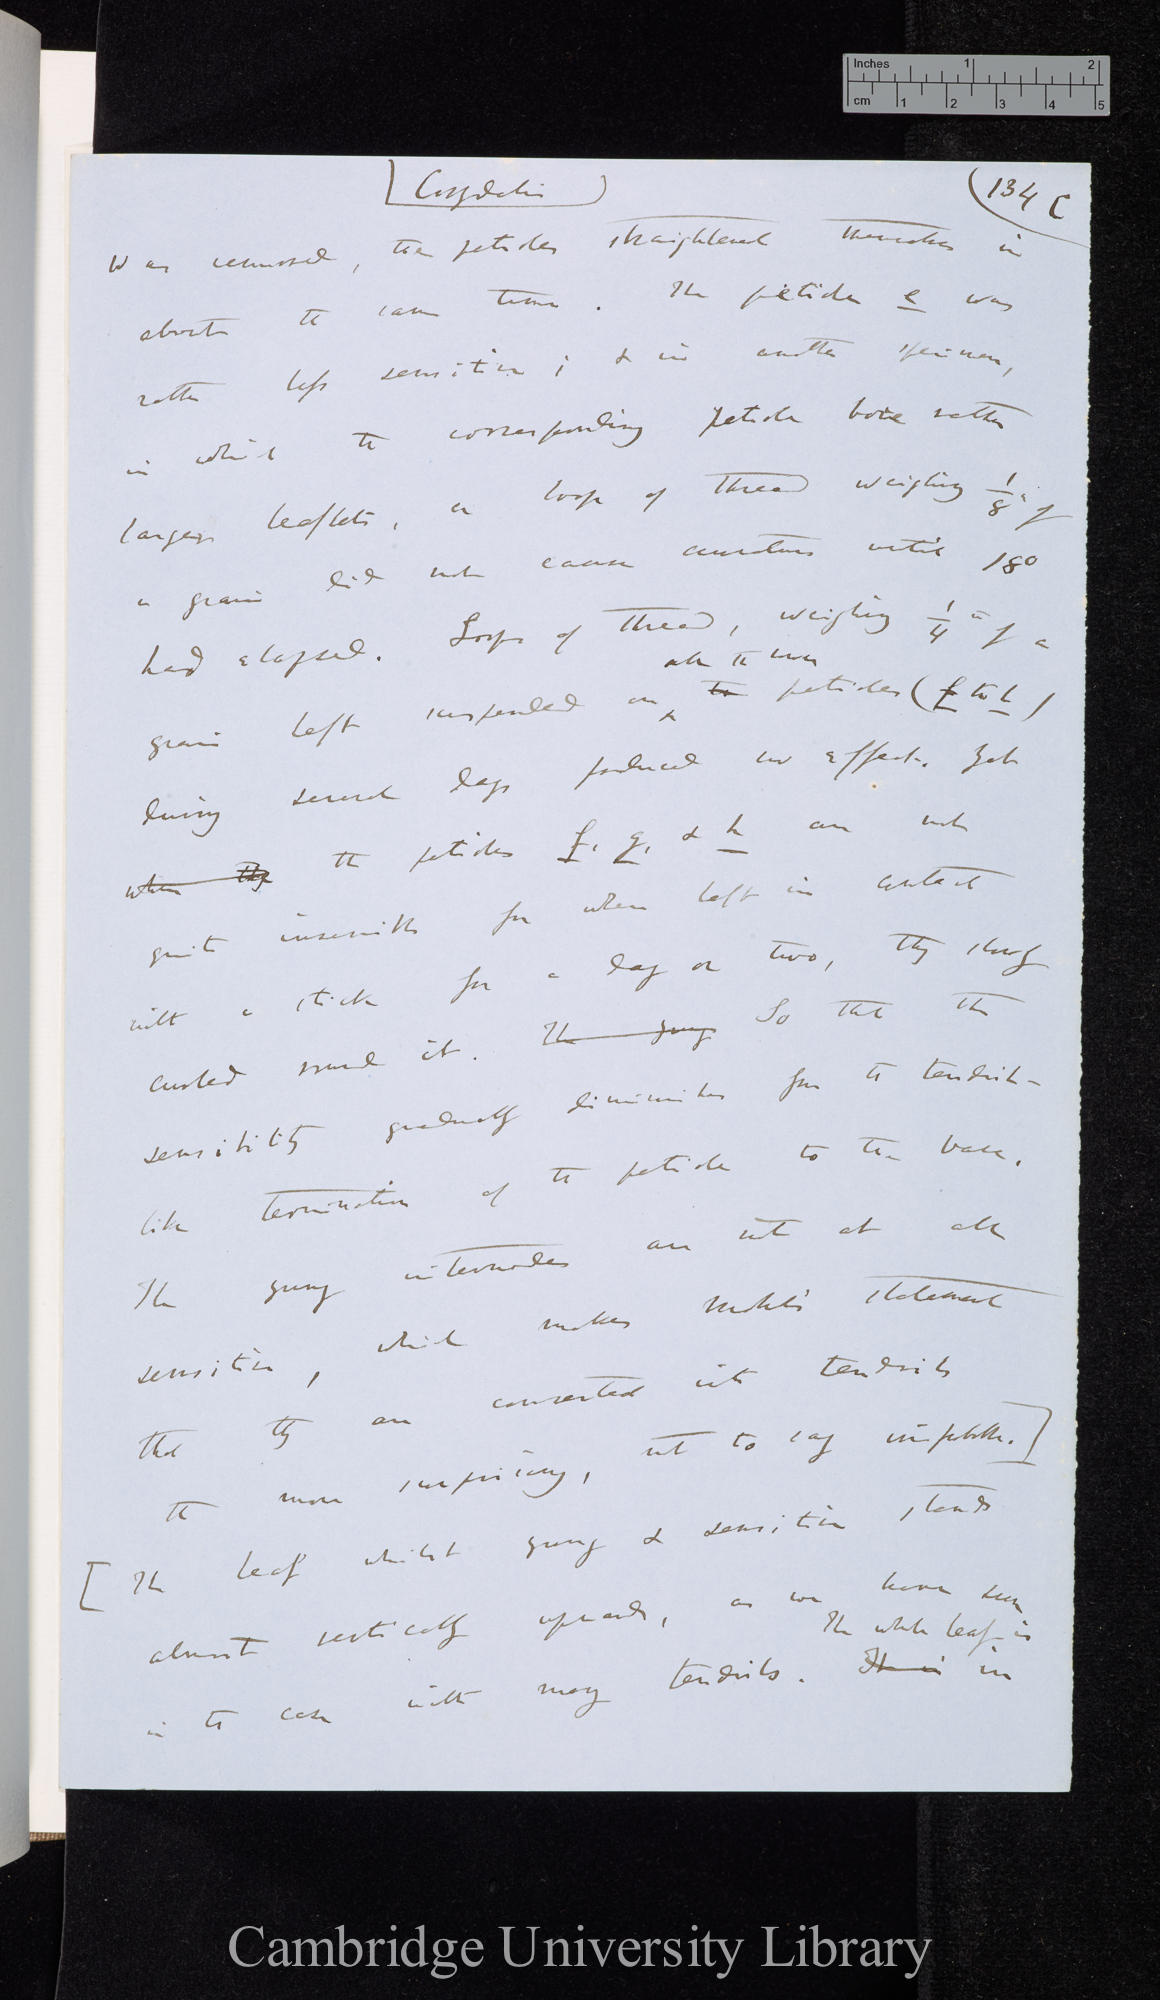 Inches 1 2
cm 1 2 3 4 5
[Corydalis) (134 C
was removed, the petioles straightened themselves in
about the same time. The petiole e was
rather less sensitive; & in another specimen,
in which the corresponding petiole bore rather
larger leaflets, a loop of thread weighing 1/8 th of
a grain did not cause curvature until 18°
had elapsed. Loops of thread, weighing 1/4 th of a
all the lower
grain left suspended on the petioles (f to h)
during several days produced no effect. Yet
when they the petioles f, g, & h are not
quite insensible for when left in contact
with a stick for a day or two, they slowly
curled round it. The young So that the
sensibility gradually diminishes from the tendril-
like termination of the petiole to the base.
The young internodes are not at all
sensitive, which makes Mohl's statement
that they are converted into tendrils
the more surprising, not to say improbable.]
[The leaf whilst young & sensitive stands
almost vertically upwards, as we have seen
The whole leaf is
is the case with many tendrils. It is in
Cambridge University Library